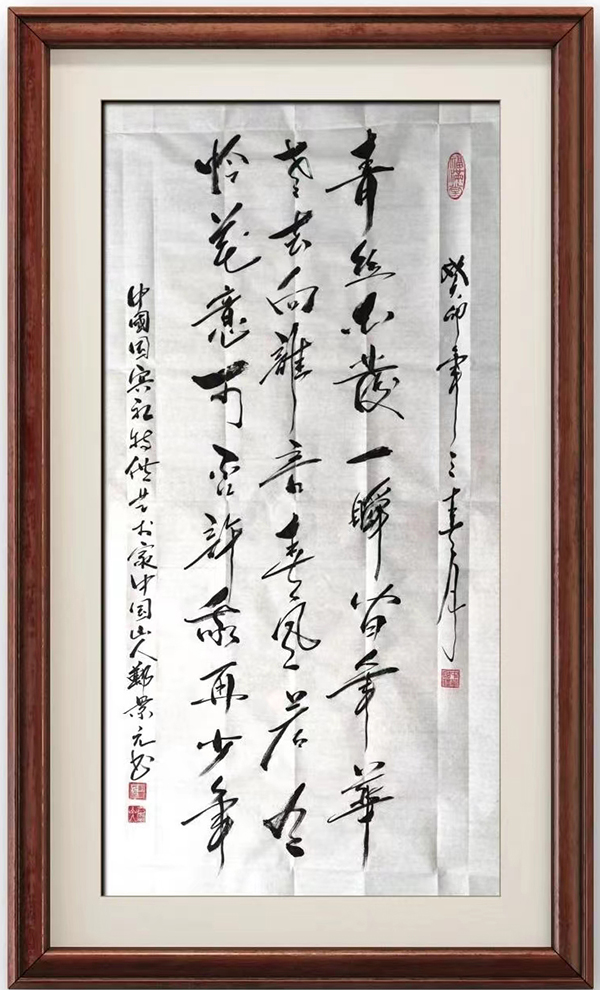 癸卯年三春月
青丝白發一瞬间年華
老去向誰言春风若有
怜花意可否許我再少年
中國国宾礼特供艺术家中国山人景元书